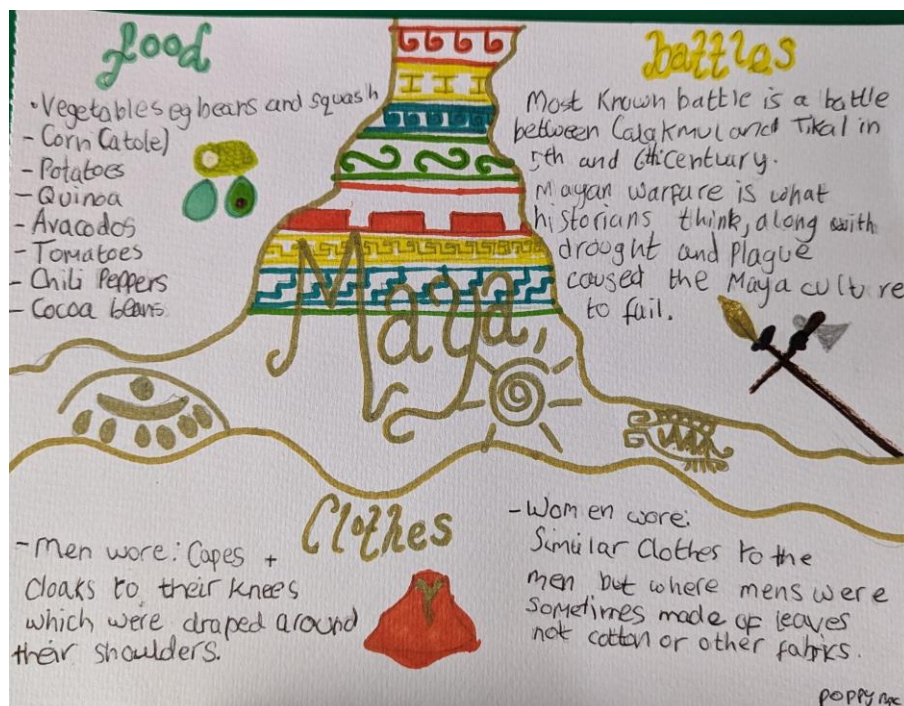 food
• Vegetables eg beans and squash
- Corn (atole)
- Potatoes
- Quinoa
- Avacodos
- Tomatoes
- Chili Peppers
- Cocoa beans
battles
Most Known battle is a battle
between Calakmul and Tikal in
5th and 6th century.
Mayan warfare is what
historians think, along with
drought and Plague
caused the Maya culture
to fail.
Maya
Clothes
- Men wore: Capes +
cloaks to their knees
which were draped around
their shoulders.
- Women wore:
Similar Clothes to the
men but where mens were
sometimes made of leaves
not cotton or other fabrics.
Poppy